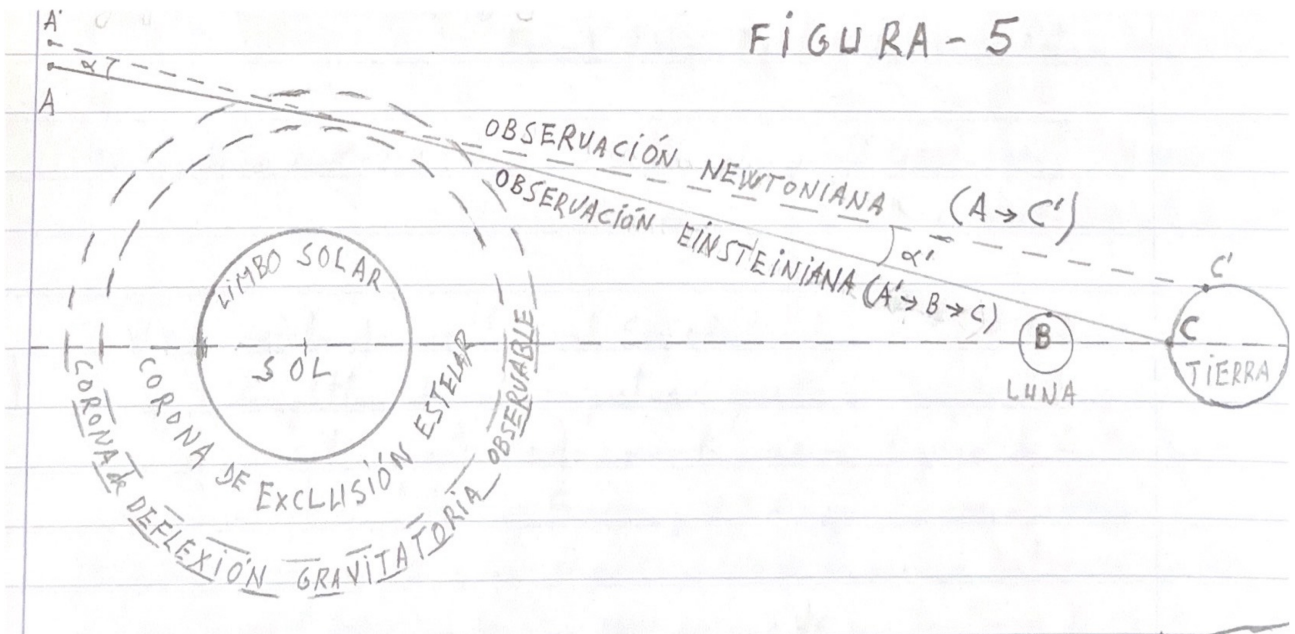 FiGURA-5
A'
α
A
OBSERVACIÓN NEWTONIANA (A→C')
OBSERVACIÓN EiNSTEiNiANA (A'→B→C)
α'
C'
B
C
LUNA
TiERRA
LiMBO SOLAR
SOL
CORONA DE EXCLUSIÓN ESTELAR
CORONA de DEFLEXIÓN GRAVITATORIA OBSERVABLE